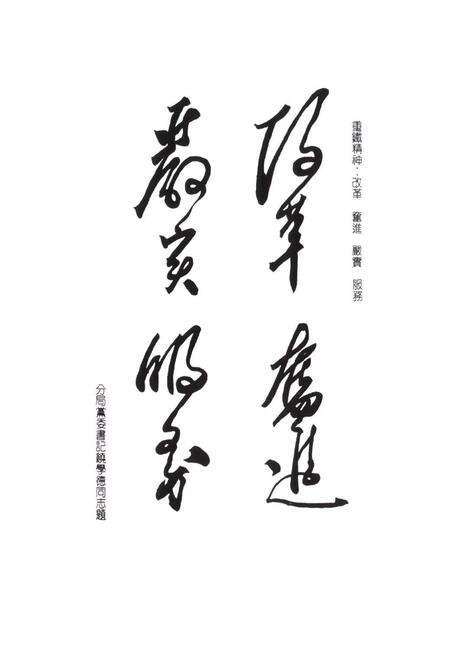 重鐵精神：改革 奮進 嚴實 服務
改革
奮進
嚴实
服务
分局黨委書記饒學德同志題